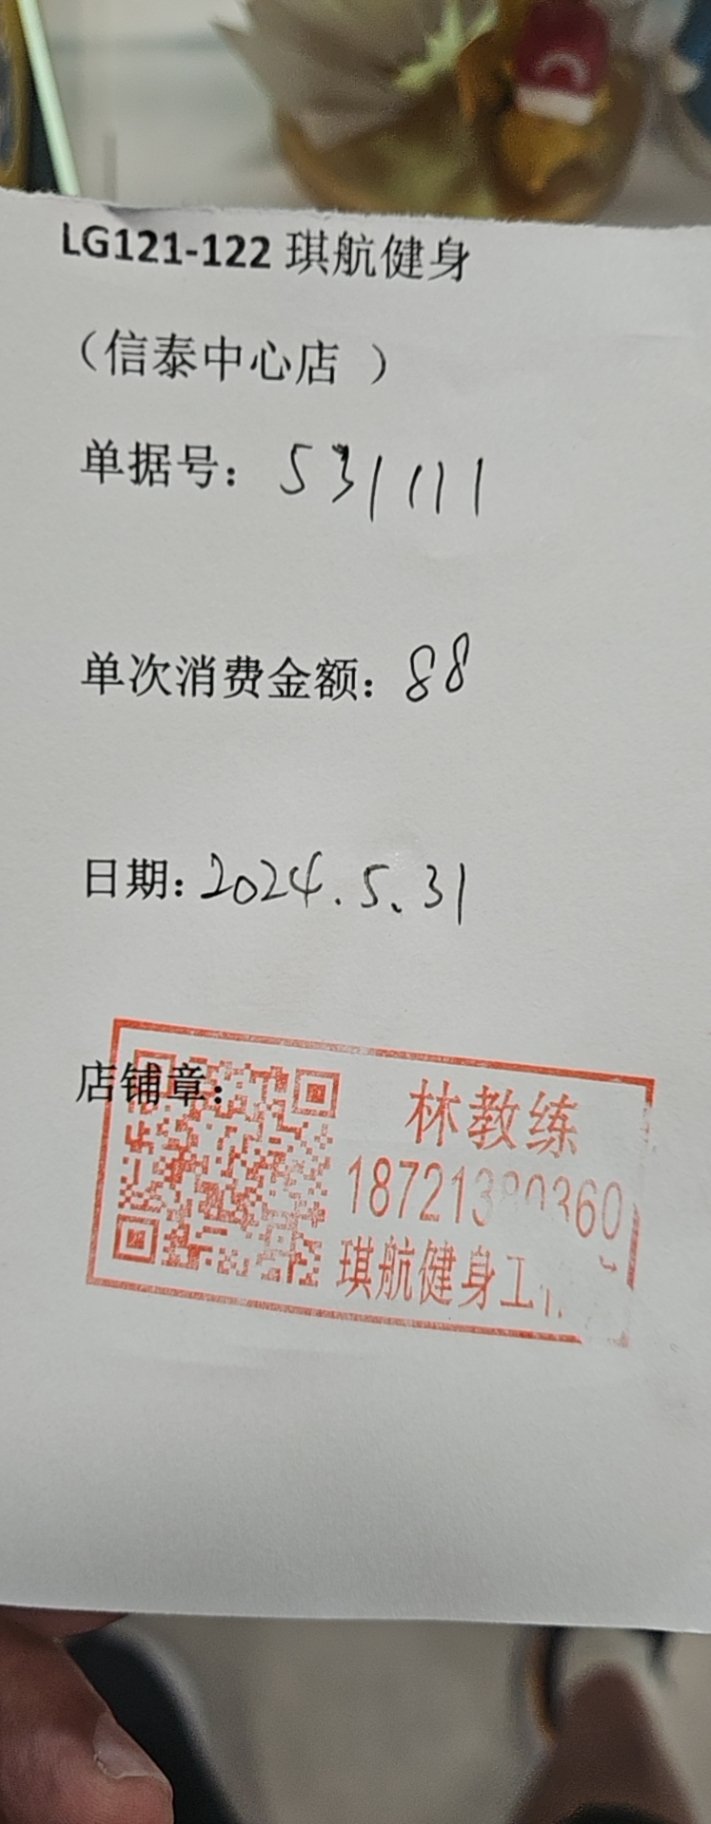 LG121-122 琪航健身
（信泰中心店 ）
单据号：531111
单次消费金额：88
日期：2024.5.31
店铺章：
林教练
琪航健身